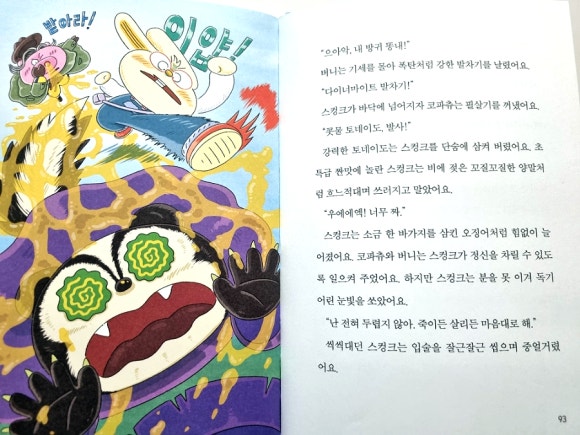 받아라!
이얍!
“으아악, 내 방귀 똥내!”
버니는 기세를 몰아 폭탄처럼 강한 발차기를 날렸어요.
“다이너마이트 발차기!”
스컹크가 바닥에 넘어지자 코파츄는 필살기를 꺼냈어요.
“콧물 토네이도, 발사!”
강력한 토네이도는 스컹크를 단숨에 삼켜 버렸어요. 초
특급 짠맛에 놀란 스컹크는 비에 젖은 꼬질꼬질한 양말처
럼 흐느적대며 쓰러지고 말았어요.
“우에에엑! 너무 짜.”
스컹크는 소금 한 바가지를 삼킨 오징어처럼 힘없이 늘
어졌어요. 코파츄와 버니는 스컹크가 정신을 차릴 수 있도
록 일으켜 주었어요. 하지만 스컹크는 분을 못 이겨 독기
어린 눈빛을 쏘았어요.
“난 전혀 두렵지 않아. 죽이든 살리든 마음대로 해.”
씩씩대던 스컹크는 입술을 잘근잘근 씹으며 중얼거렸
어요.
93